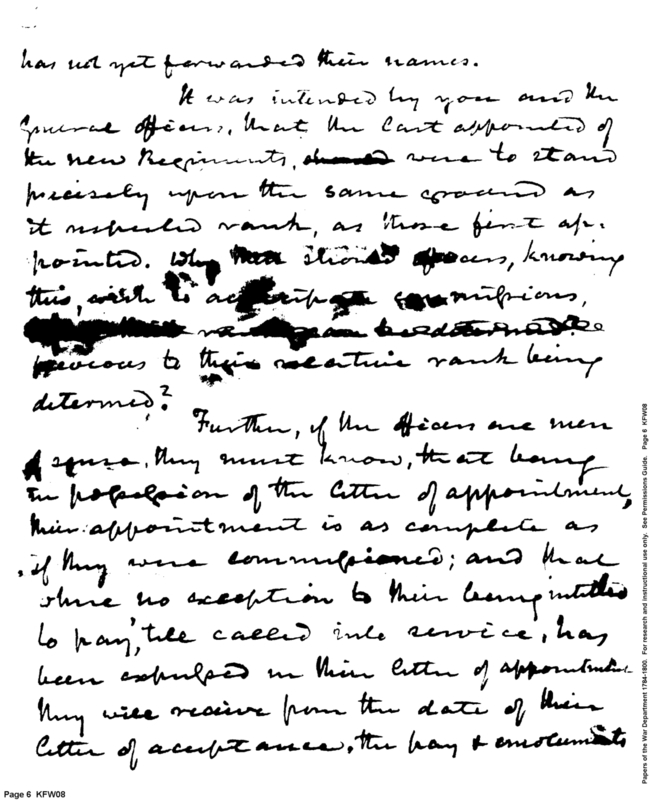 has not yet forwarded their names.
It was intended by you and the
General officers, that the last appointed of
the new Regiments, were to stand
precisely upon the same ground as
it respected rank, as those first ap-
pointed. Why then should officers, knowing
this, wish to commissions,
previous to their relative rank being
determed?
Further, if the officers are men
of sense, they must know, that being
in possession of the letter of appointment,
their appointment is as complete as
if they were commissioned; and that
where no exception to their being intitled
to pay, till called into service, has
been expressed in their letter of appointment
they will receive from the date of their
letter of acceptance, the pay & emoluments
Page 6 KFW08
Papers of the War Department 1784-1800. For research and instructional use only. See Permissions Guide. Page 6 KFW08